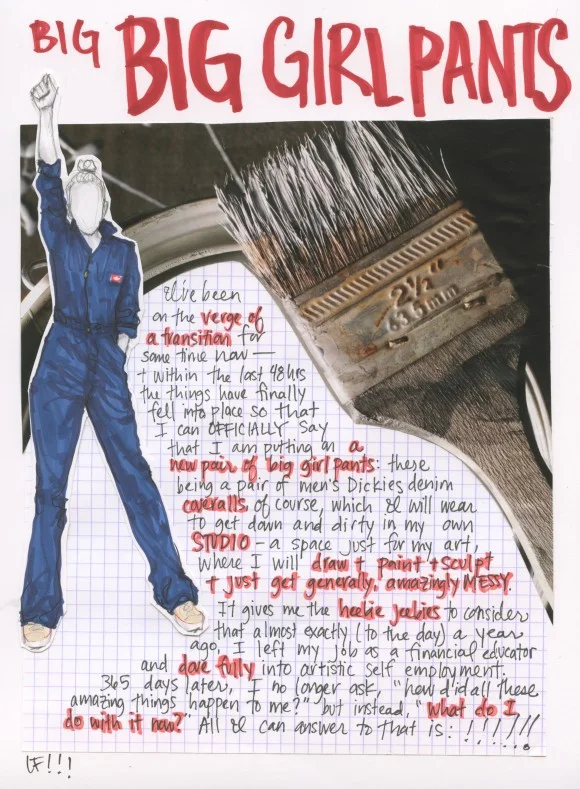 BIG BIG GIRL PANTS
2 1/2"
63.5mm
I've been
on the verge of
a transition for
some time now —
+ within the last 48 hrs
the things have finally
fell into place so that
I can OFFICIALLY say
that I am putting on a
new pair of big girl pants: these
being a pair of men's Dickies denim
coveralls, of course, which I will wear
to get down and dirty in my own
STUDIO – a space just for my art,
where I will draw + paint + sculpt
+ just get generally, amazingly MESSY.
It gives me the heebie jeebies to consider
that almost exactly (to the day) a year
ago, I left my job as a financial educator
and dove fully into artistic self employment.
365 days later, I no longer ask, "how did all these
amazing things happen to me?" but instead, "what do I
do with it now?" All I can answer to that is: !!!!!!!
LF!!!